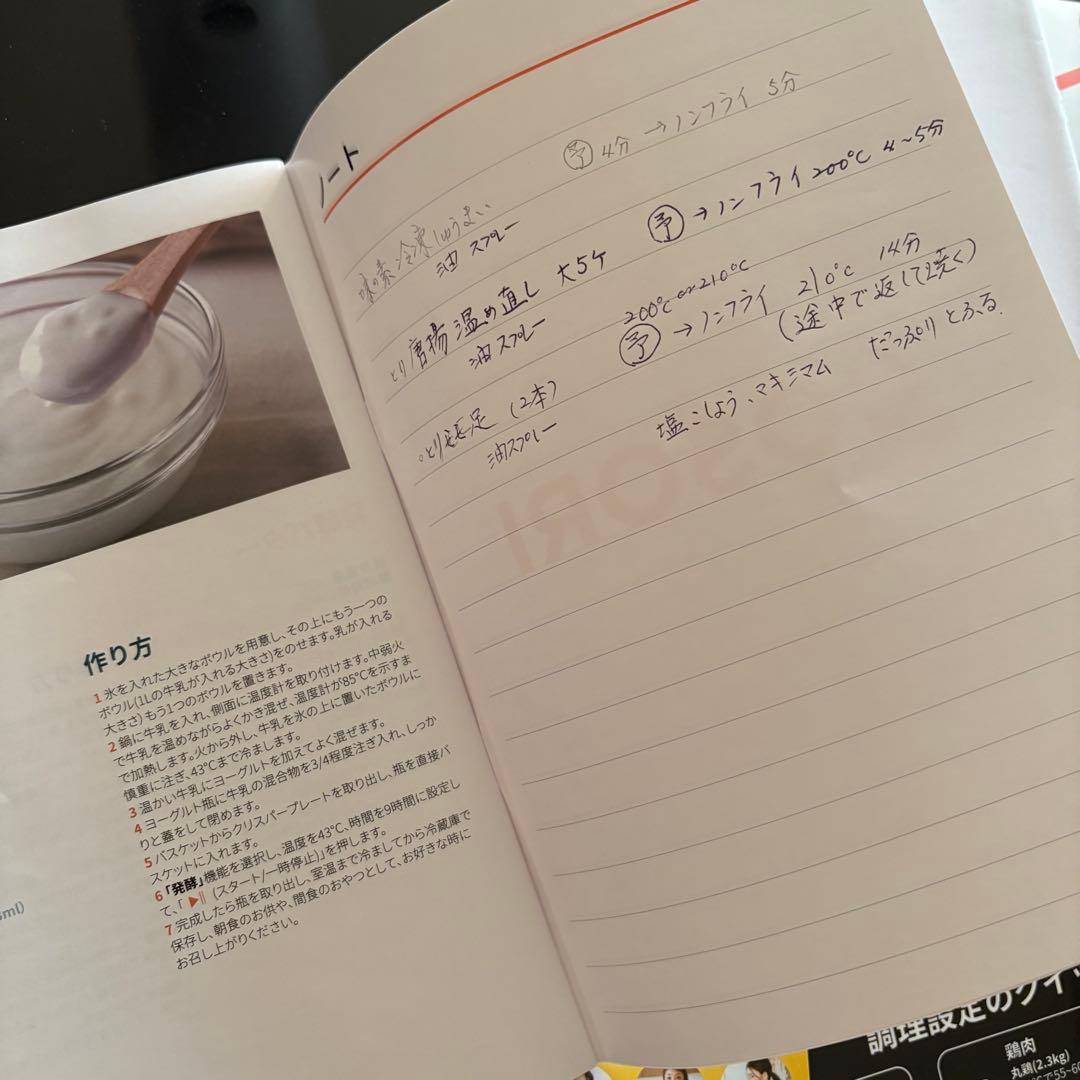 作り方
1 氷を入れた大きなボウルを用意し、その上にもう一つの
ボウル(1Lの牛乳が入れる大きさ)をのせます。乳が入れる
大きさ)もう1つのボウルを置きます。
2 鍋に牛乳を入れ、側面に温度計を取り付けます。中弱火
で牛乳を温めながらよくかき混ぜ、温度計が85°Cを示すま
で加熱します。火から外し、牛乳を氷の上に置いたボウルに
慎重に注ぎ、43°Cまで冷まします。
3 温かい牛乳にヨーグルトを加えてよく混ぜます。
4 ヨーグルト瓶に牛乳の混合物を3/4程度注ぎ入れ、しっか
りと蓋をして閉めます。
5 バスケットからクリスパープレートを取り出し、瓶を直接バ
スケットに入れます。
6 「発酵」機能を選択し、温度を43°C、時間を9時間に設定し
て、「▶|| (スタート/一時停止)」を押します。
7 完成したら瓶を取り出し、室温まで冷ましてから冷蔵庫で
保存し、朝食のお供や、間食のおやつとして、お好きな時に
お召し上がりください。
ml)
ノート
予 4分 →ノンフライ 5分
味の素 冷凍しゅうまい
油スプレー
予 →ノンフライ 200°C 4~5分
とり唐揚 温め直し 大5ケ
油スプレー
200°C or 210°C
予 →ノンフライ 210°C 14分
(途中で返して焼く)
。とり 足 (2本)
油スプレー
塩こしょう、マキシマム だっぷりとふる.
調理設定のクイ
鶏肉
丸鶏(2.3kg)
で55~60